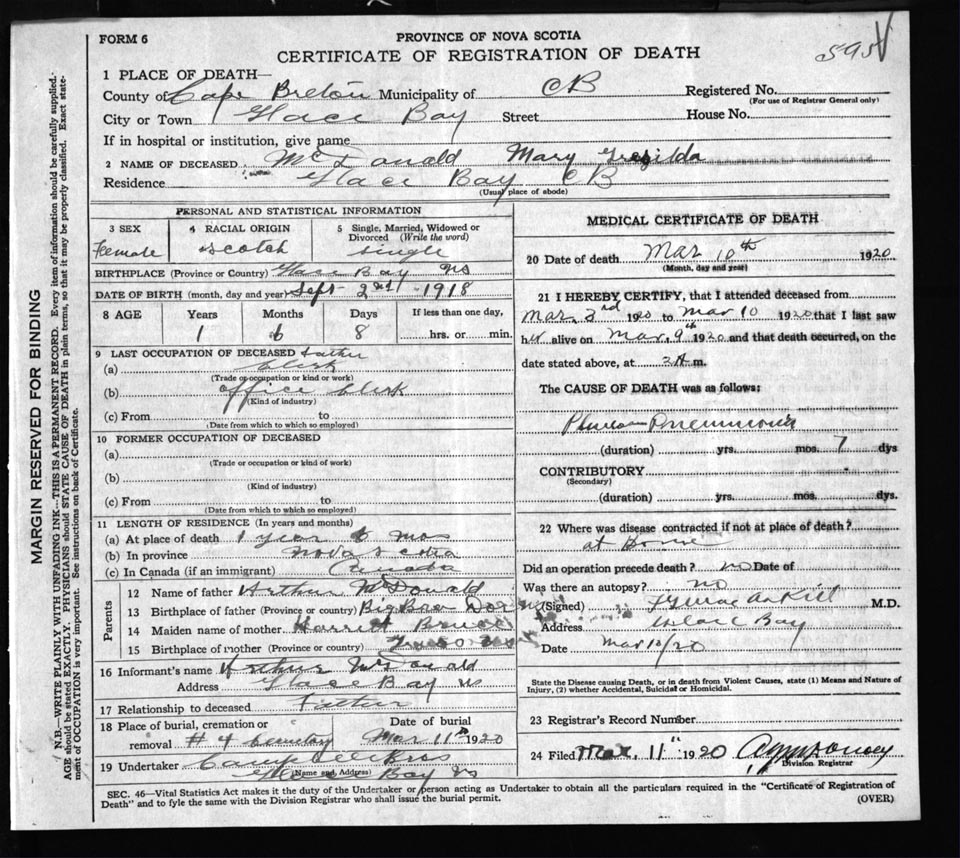 FORM 6
PROVINCE OF NOVA SCOTIA
CERTIFICATE OF REGISTRATION OF DEATH
595
MARGIN RESERVED FOR BINDING
N.B.—WRITE PLAINLY WITH UNFADING INK—THIS IS A PERMANENT RECORD. Every item of information should be carefully supplied.
AGE should be stated EXACTLY. PHYSICIANS should STATE CAUSE OF DEATH in plain terms, so that it may be properly classified. Exact state-
ment of OCCUPATION is very important. See instructions on back of Certificate.
1 PLACE OF DEATH—
County of Cape Breton Municipality of CB Registered No.
(For use of Registrar General only)
City or Town Glace Bay Street House No.
If in hospital or institution, give name
2 NAME OF DECEASED McDonald Mary
Residence Glace Bay CB
(Usual place of abode)
PERSONAL AND STATISTICAL INFORMATION
3 SEX 4 RACIAL ORIGIN 5 Single, Married, Widowed or
Divorced (Write the word)
Female Scotch Single
BIRTHPLACE (Province or Country) Glace Bay NS
DATE OF BIRTH (month, day and year) Sept 2nd 1918
8 AGE Years Months Days If less than one day,
1 6 8 hrs. or min.
9 LAST OCCUPATION OF DECEASED Father
(a) Clerk
(Trade or occupation or kind or work)
(b) Office Clerk
(Kind of industry)
(c) From to
(Date from which to which so employed)
10 FORMER OCCUPATION OF DECEASED
(a)
(Trade or occupation or kind of work)
(b)
(Kind of industry)
(c) From to
(Date from which to which so employed)
11 LENGTH OF RESIDENCE (In years and months)
(a) At place of death 1 year 6 mos
(b) In province Nova Scotia
(c) In Canada (if an immigrant) Canada
Parents
12 Name of father Arthur McDonald
13 Birthplace of father (Province or country)
14 Maiden name of mother Harriet
15 Birthplace of mother (Province or country)
16 Informant's name Arthur McDonald
Address Glace Bay NS
17 Relationship to deceased Father
18 Place of burial, cremation or Date of burial
removal # 4 Cemetery Mar 11th 1920
19 Undertaker Bros
(Name and Address)
Glace Bay NS
MEDICAL CERTIFICATE OF DEATH
20 Date of death Mar 10th 1920
(Month, day and year)
21 I HEREBY CERTIFY, that I attended deceased from
Mar. 3rd 1920 to Mar 10 1920 that I last saw
her alive on Mar. 9th 1920 and that death occurred, on the
date stated above, at m.
The CAUSE OF DEATH was as follows:
Pneumonia
(duration) yrs. mos. 7 dys
CONTRIBUTORY
(Secondary)
(duration) yrs. mos. dys.
22 Where was disease contracted if not at place of death?
at home
Did an operation precede death? no Date of
Was there an autopsy? no
(Signed) M.D.
Address Glace Bay
Date Mar 10/20
State the Disease causing Death, or in death from Violent Causes, state (1) Means and Nature of
Injury, (2) whether Accidental, Suicidal or Homicidal.
23 Registrar's Record Number
24 Filed Mar. 11" 1920
Division Registrar
SEC. 46—Vital Statistics Act makes it the duty of the Undertaker or person acting as Undertaker to obtain all the particulars required in the "Certificate of Registration of
Death" and to fyle the same with the Division Registrar who shall issue the burial permit.
(OVER)